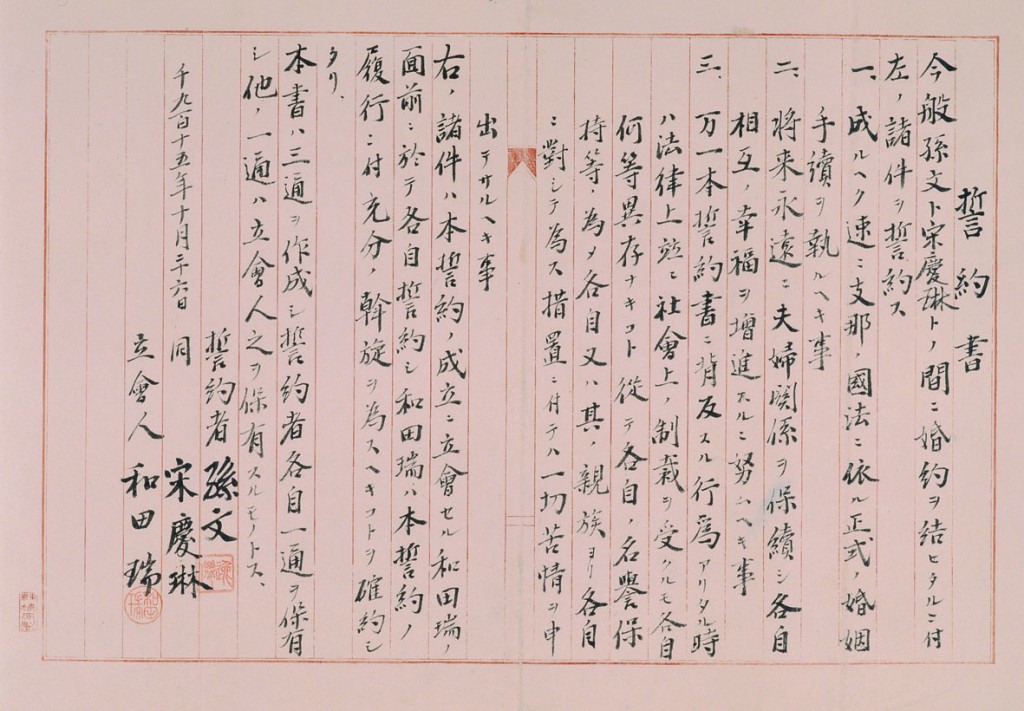 誓約書
今般孫文ト宋慶琳トノ間ニ婚約ヲ結ヒタルニ付
左ノ諸件ヲ誓約ス
一、成ルヘク速ニ支那ノ國法ニ依ル正式ノ婚姻
手續ヲ執ルヘキ事
二、將来永遠ニ夫婦関係ヲ保續シ各自
相互ノ幸福ヲ增進スルニ努ムヘキ事
三、万一本誓約書ニ背反スル行爲アリタル時
ハ法律上並ニ社會上ノ制裁ヲ受クルモ各自
何等異存ナキコト従テ各自ノ名譽保
持等ノ為メ各自又ハ其ノ親族ヨリ各自
ニ對シテ為ス措置ニ付テハ一切苦情ヲ申
出テサルヘキ事
右ノ諸件ハ本誓約ノ成立ニ立會セル和田瑞ノ
面前ニ於テ各自誓約シ和田瑞ハ本誓約ノ
履行ニ付充分ノ斡旋ヲ為スヘキコトヲ確約シ
タリ、
本書ハ三通ヲ作成シ誓約者各自一通ヲ保有
シ他ノ一通ハ立會人之ヲ保有スルモノトス、
千九百十五年十月二十六日
誓約者 孫文
同 宋慶琳
立會人 和田瑞